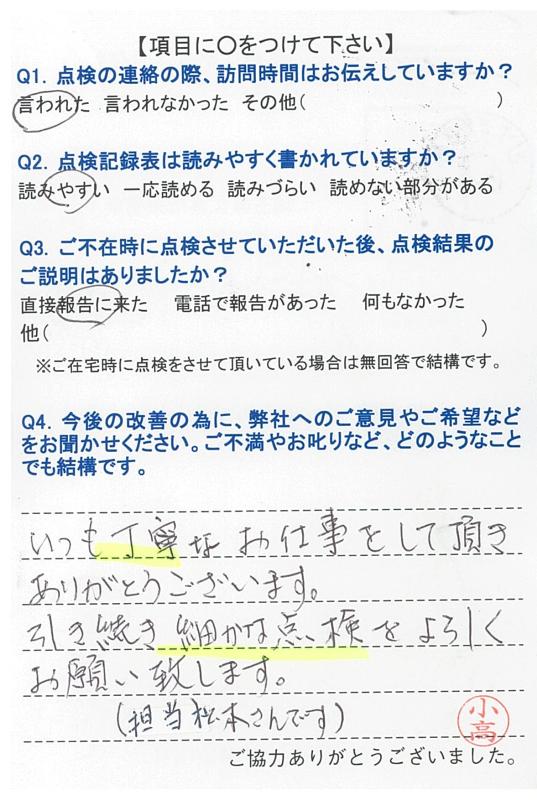 【項目に○をつけて下さい】
Q1. 点検の連絡の際、訪問時間はお伝えしていますか？
言われた 言われなかった その他(　　　)
Q2. 点検記録表は読みやすく書かれていますか？
読みやすい 一応読める 読みづらい 読めない部分がある
Q3. ご不在時に点検させていただいた後、点検結果の
ご説明はありましたか？
直接報告に来た 電話で報告があった 何もなかった
他(　　　)
※ご在宅時に点検をさせて頂いている場合は無回答で結構です。
Q4. 今後の改善の為に、弊社へのご意見やご希望など
をお聞かせください。ご不満やお叱りなど、どのようなこと
でも結構です。
いつも丁寧なお仕事をして頂き
ありがとうございます。
引き続き細かな点検をよろしく
お願い致します。
(担当松本さんです)
小高
ご協力ありがとうございました。